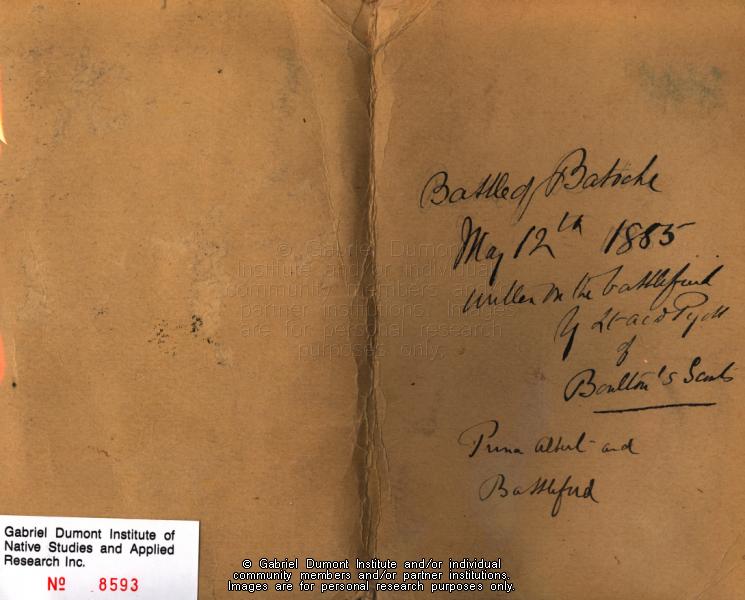 Battle of Batoche
May 12th 1885
written on the battlefield
by Lt
of
Boulton's Scouts
Prince Albert and
Battleford
Gabriel Dumont Institute of
Native Studies and Applied
Research Inc.
Nº 8593
© Gabriel Dumont
Institute and/or individual
community members and/or
partner institutions. Images
are for personal research
purposes only.
© Gabriel Dumont Institute and/or individual
community members and/or partner institutions.
Images are for personal research purposes only.